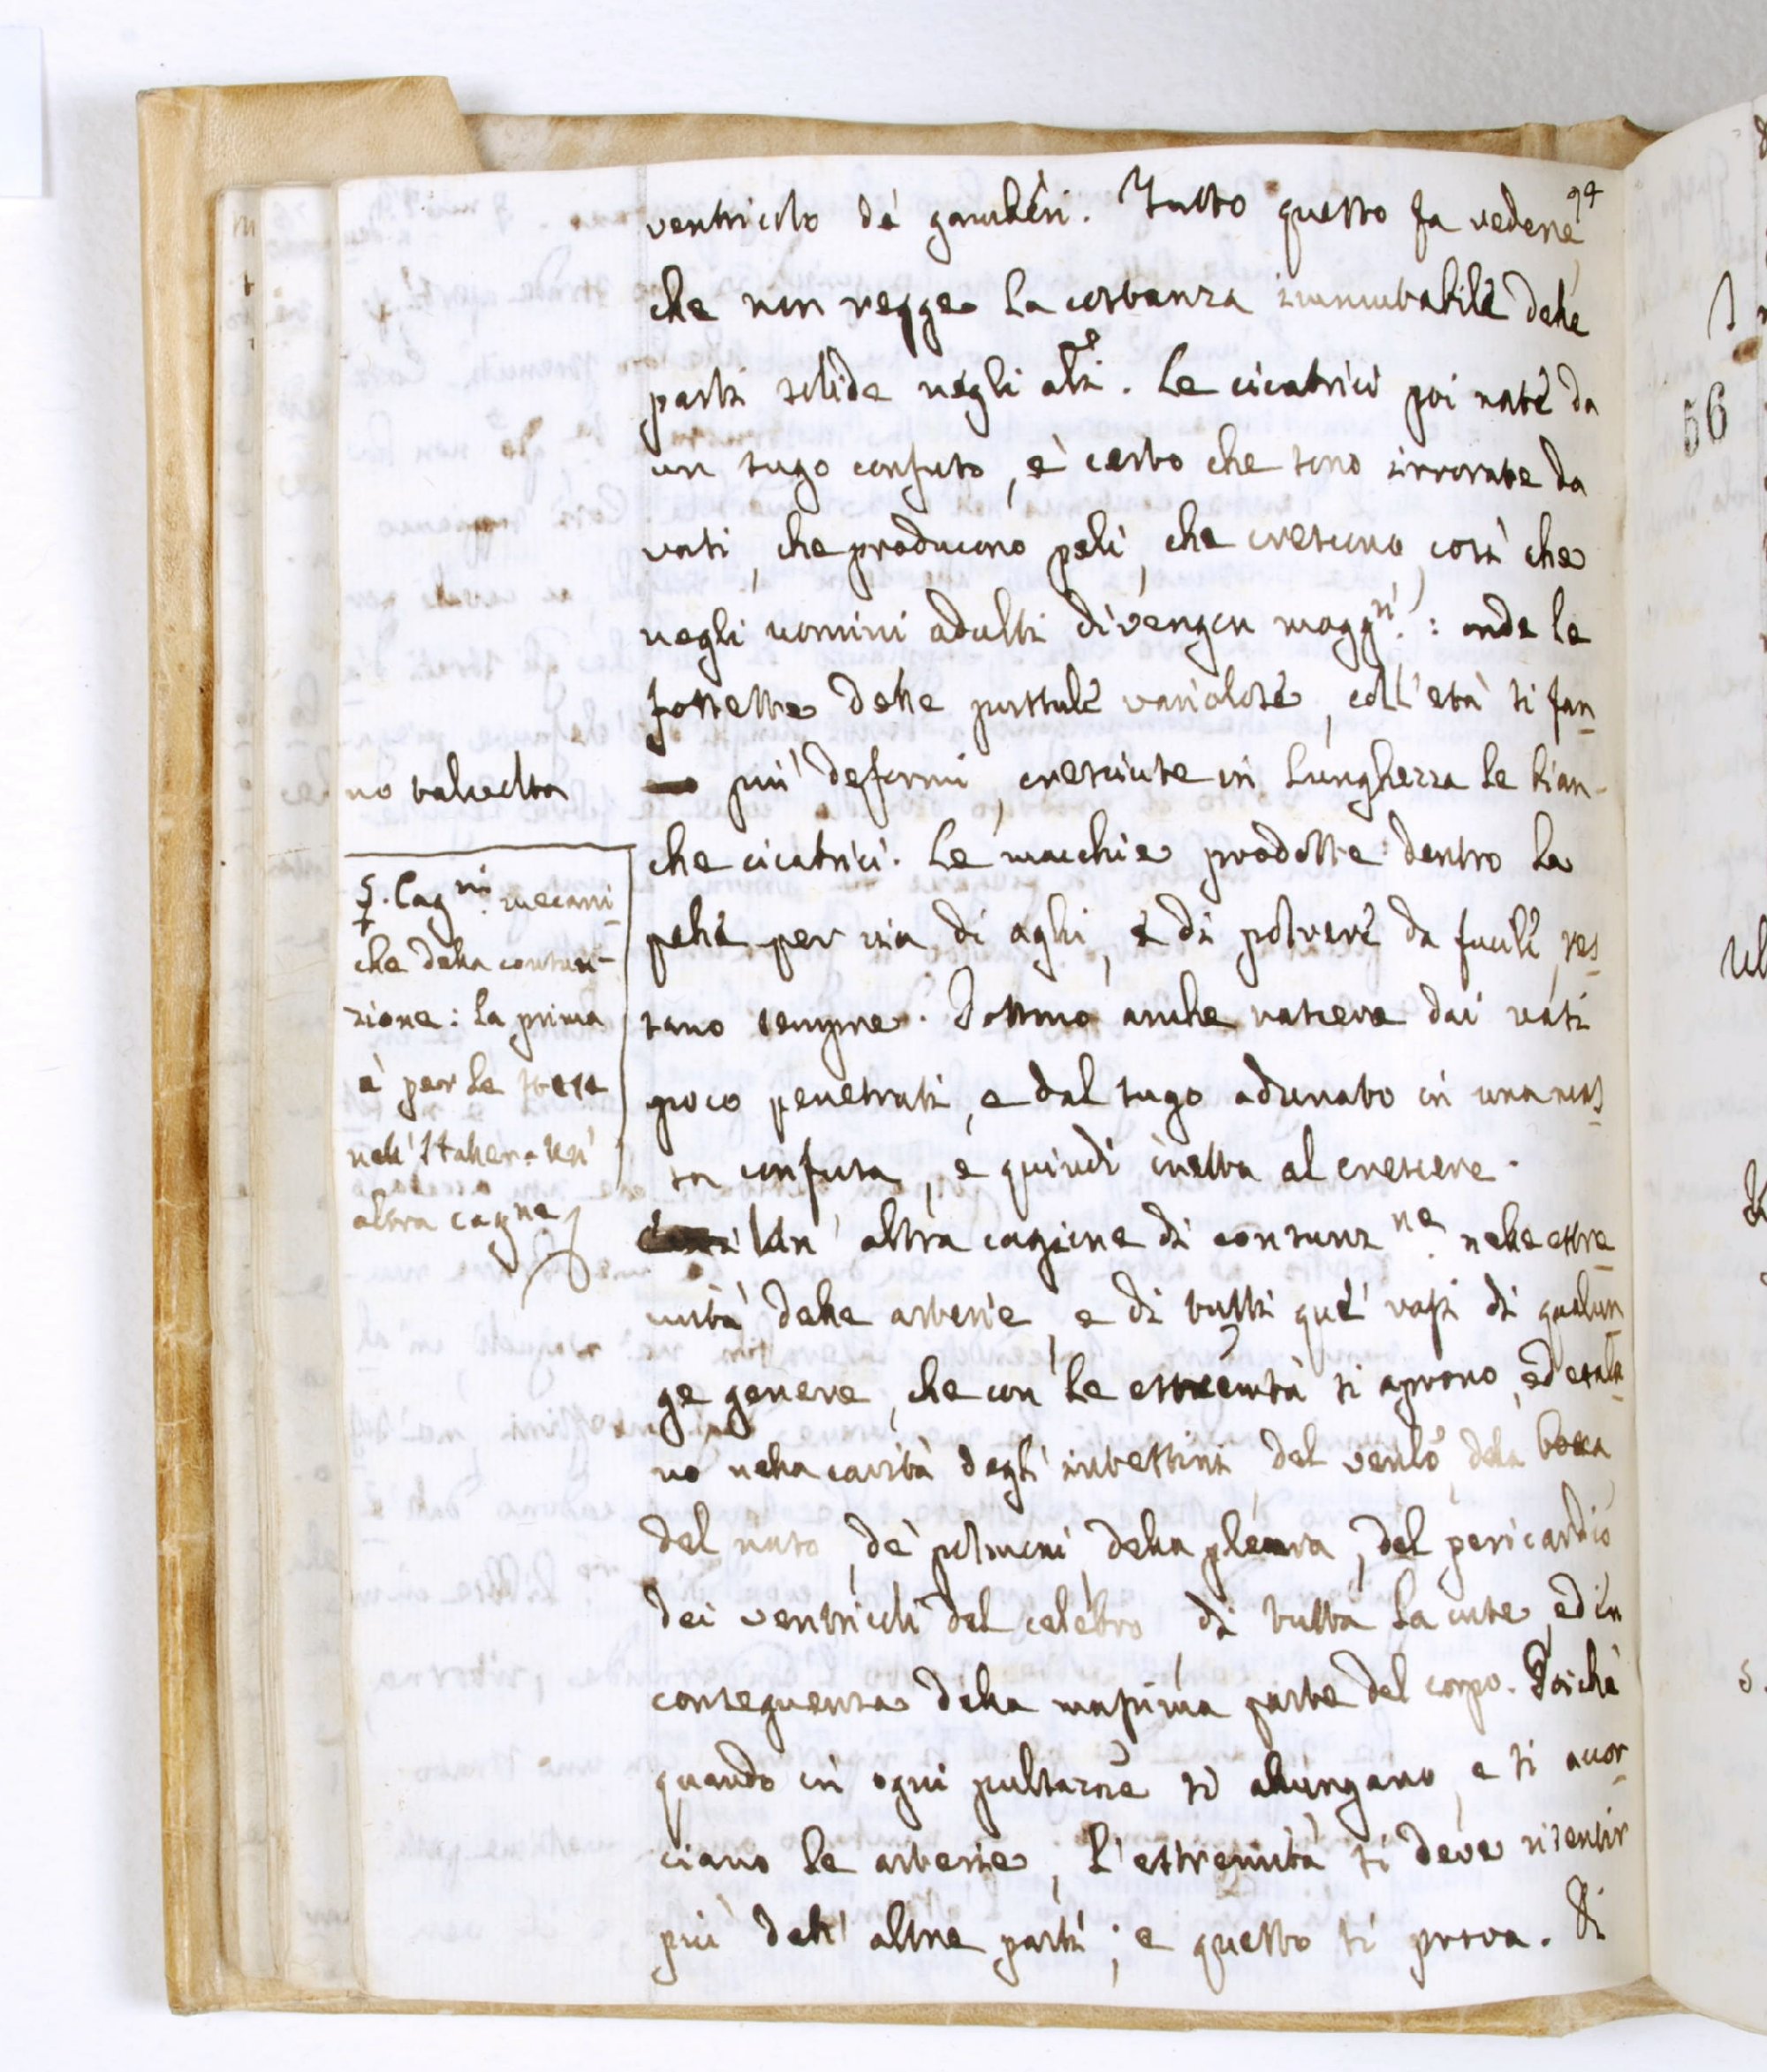 94
ventricolo de' gamberi. Tutto questo fa vedere,
che non regge la costanza immutabile delle
parti solide negli ali.pe. Le cicatrici poi nate da
un sugo confuso, è certo che sono irrorate da
vasi, che producono peli, che crescono, così che
negli uomini adulti divengon magg.ri: onde le
fossette delle pustule variolose, coll'età si fan-
no talvolta
più deformi, cresciute in lunghezza le bian-
che cicatrici. Le macchie prodotte dentro la
pelle per via di aghi, e di polvere da fucile, res-
tano sempre. Possono anche nascere dai vasi
poco penetrati, e dal sugo adunato in una mas-
sa confusa, e quindi inetta al crescere.
§. Cag.ni mecani-
che della consun-
zione: la prima
è per le
nell'
altra cag.ne
Un' altra cagione di consunz.ne nelle estre-
mità delle arterie, e di tutti que' vasi di qualun-
ge genere, che con le estremità si aprono, ed esala-
no nella cavità degl' intestini del ven.lo, della bocca
del naso, de' polmoni della pleura, del pericardio
dei ventricoli del celebro di tutta la cute, ed in
conseguenza della massima parte del corpo. Poiché
quando in ogni pulsazione si allungano, e si accor-
ciano le arterie, l'estremità si deve risentir
più dell' altre parti; e questo si prova. Di
56